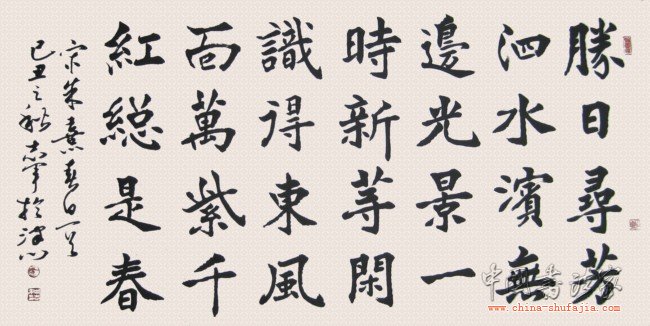 勝日尋芳
泗水濱無
邊光景一
時新等閑
識得東風
面萬紫千
紅總是春
宋朱熹春日一首
己丑之秋
中國書法家
www.china-shufajia.com